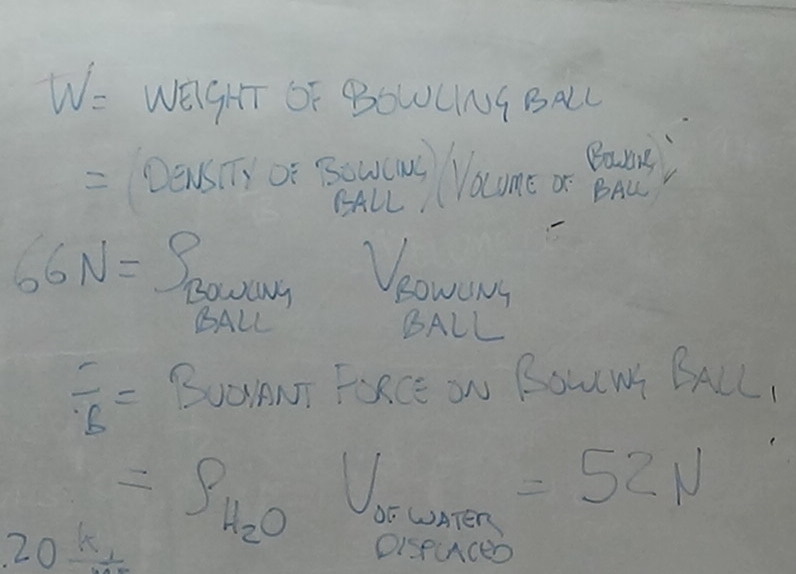 W = WEIGHT OF BOWLING BALL
= (DENSITY OF BOWLING BALL)(VOLUME OF BOWLING BALL)
66N = ρ BOWLING BALL V BOWLING BALL
B = BUOYANT FORCE ON BOWLING BALL
= ρ H2O V OF WATER DISPLACED = 52N
.20